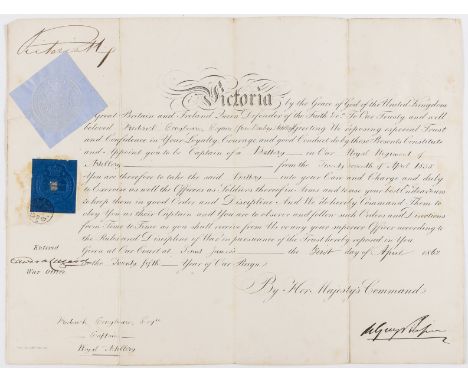 Victoria R
Victoria by the Grace of God of the United Kingdom
of Great Britain and Ireland Queen Defender of the Faith &c. To Our Trusty and well
beloved Esquire Greeting We reposing especial Trust
and Confidence in Your Loyalty, Courage and good Conduct do by these Presents Constitute
and Appoint you to be Captain of a Battery in Our Royal Regiment of
Artillery from the Twenty seventh of April 1858
You are therefore to take the said Battery into your Care and Charge and duly
to Exercise as well the Officers as Soldiers thereof in Arms and to use your best Endeavours
to keep them in good Order and Discipline And We do hereby Command them to
Obey You as their Captain and You are to observe and follow such Orders and Directions
from Time to Time as you shall receive from Us or any your superior Officer according
to the Rules and Discipline of War in pursuance of the Trust hereby reposed in You
Given at Our Court at Saint James's the First day of April 1862
In the Twenty fifth Year of Our Reign
Entered
War Office
By Her Majesty's Command
Esqre
Captain
Royal Artillery